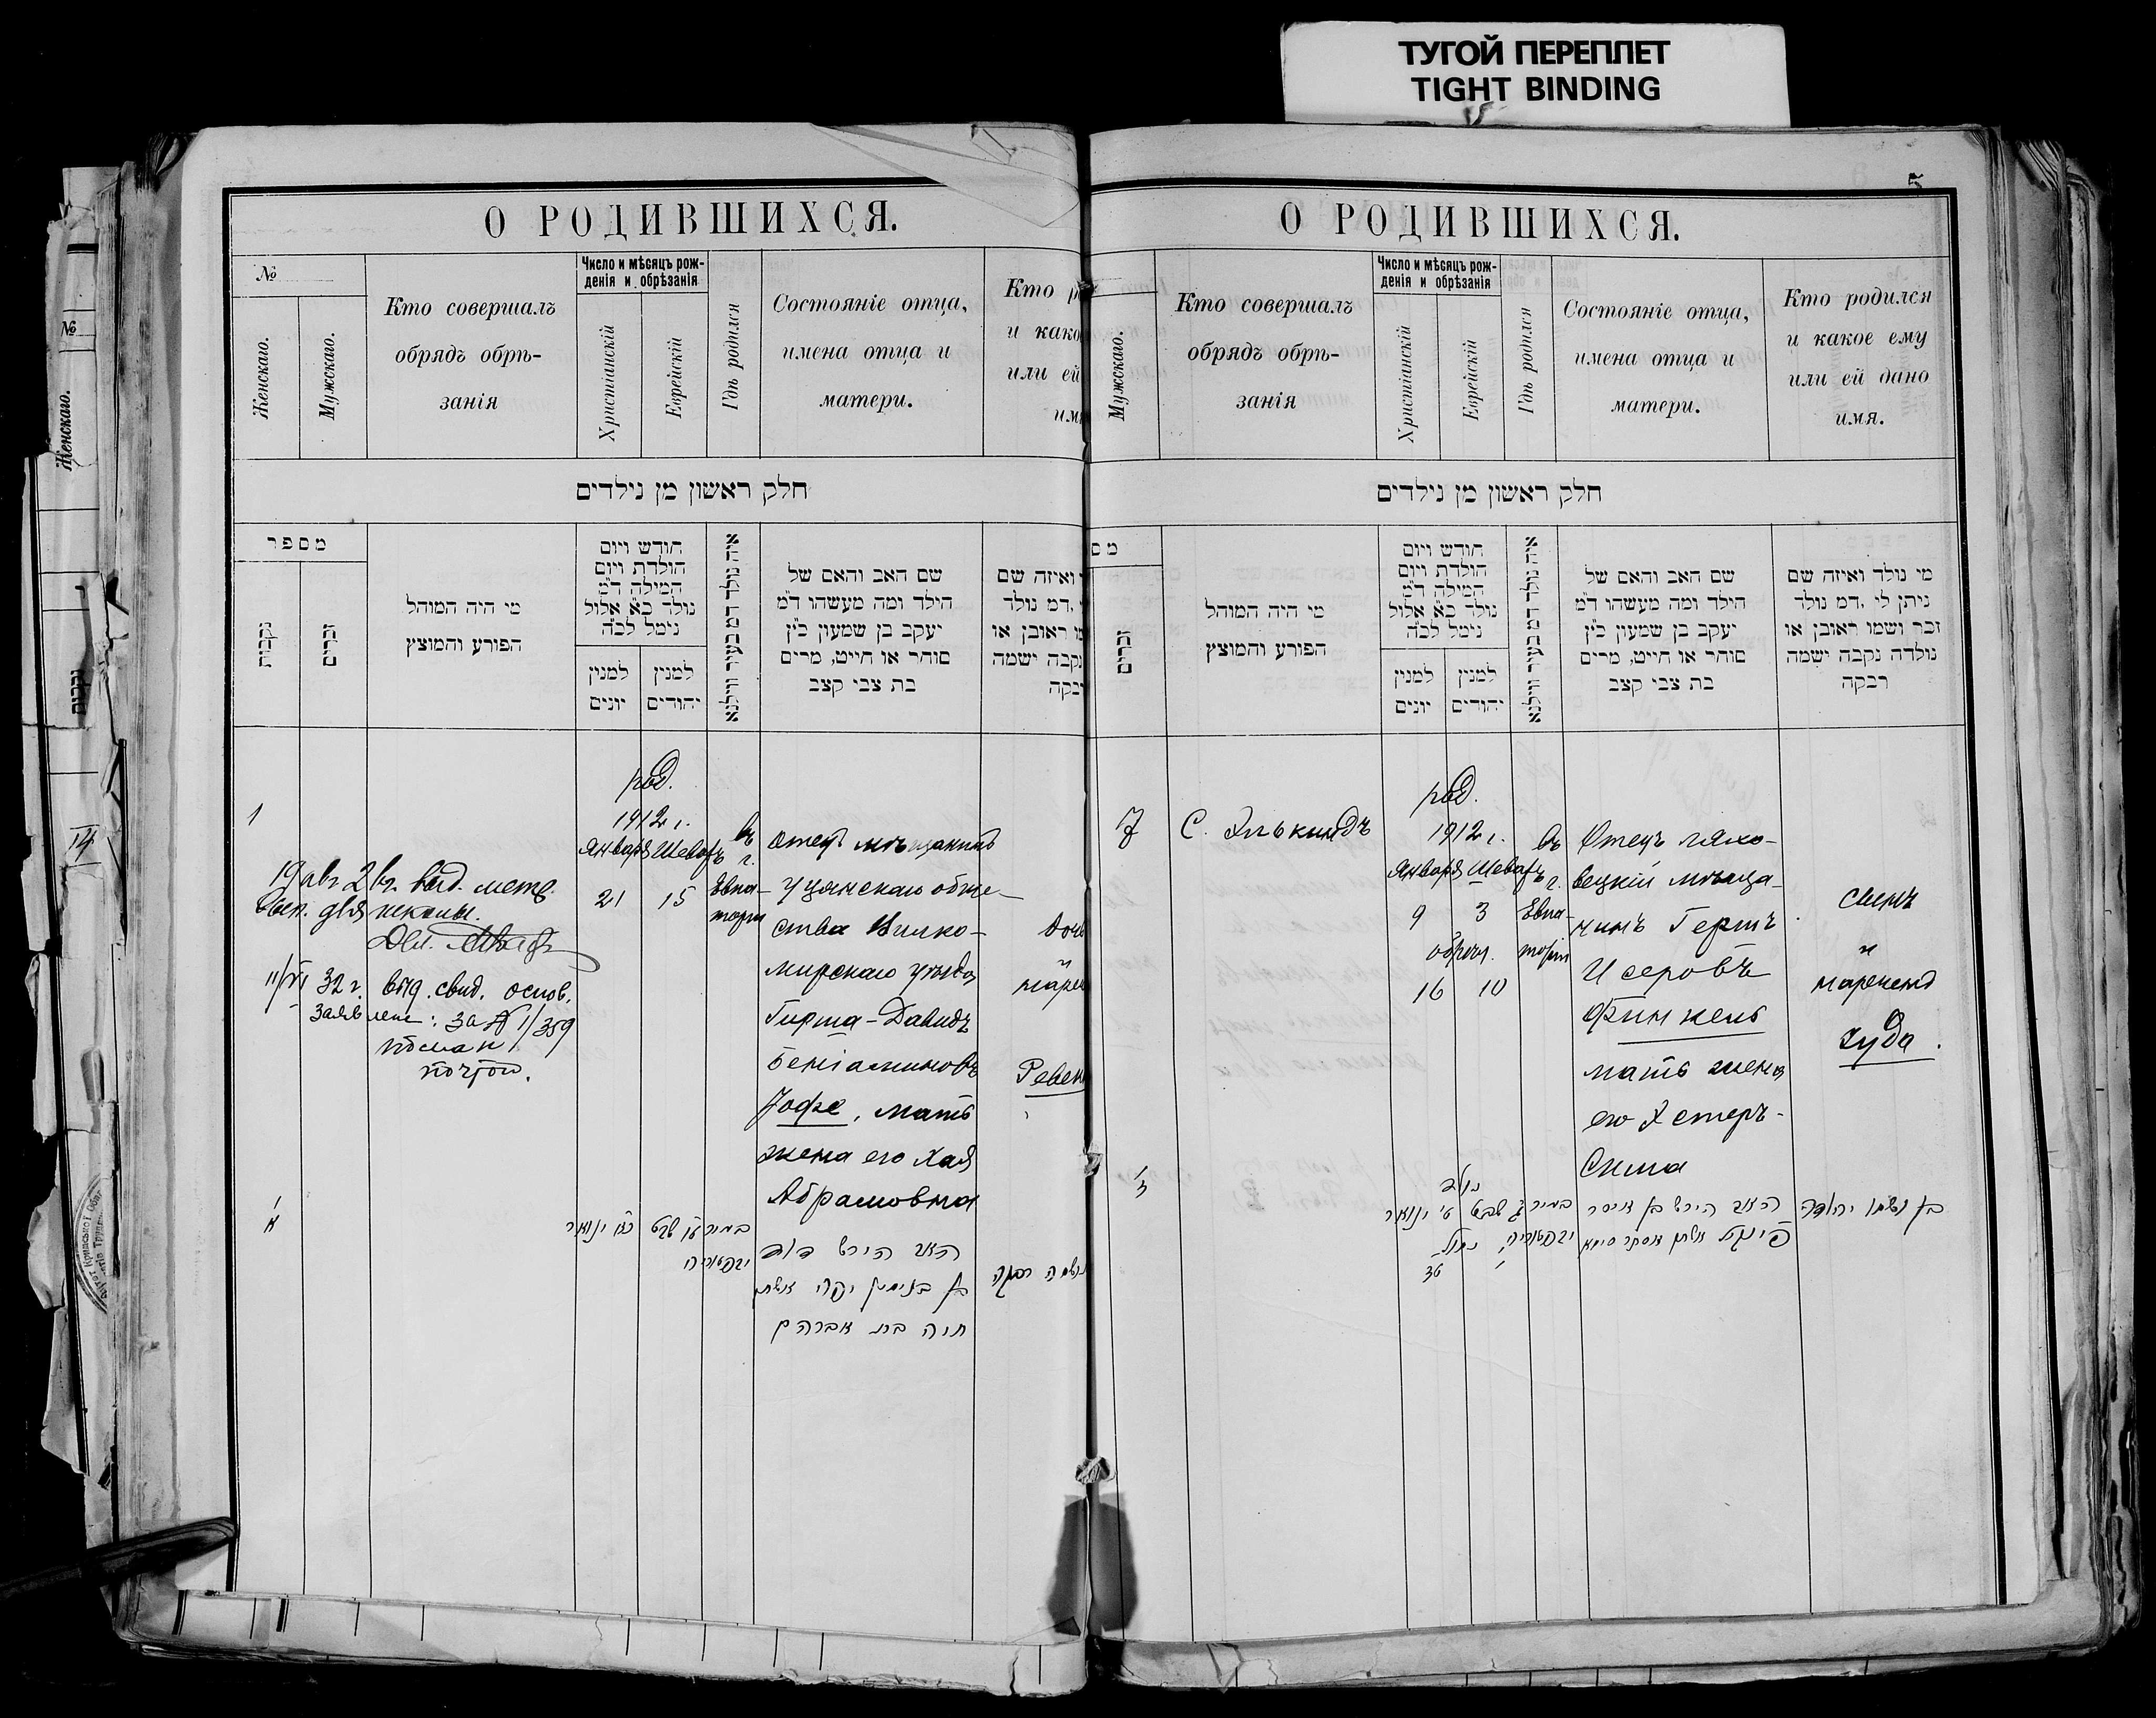 ТУГОЙ ПЕРЕПЛЕТ
TIGHT BINDING
№
Женскаго.
נקבות
14
О РОДИВШИХСЯ.
№
Женскаго.
Мужскаго.
Кто совершалъ
обрядъ обрѣ-
занія
Число и мѣсяцъ рож-
денія и обрѣзанія
Христіанскій
Еврейскій
Гдѣ родился
Состояніе отца,
имена отца и
матери.
Кто р
и како
или ей
имя
חלק ראשון מן נילדים
מספר
נקבות
זכרים
מי היה המוהל
הפורע והמוצץ
חודש ויום
הולדת ויום
המילה ד"מ
נולד כ"א אלול
נימל לכ"ה
למנין
יונים
למנין
יהודים
איה נולד דמ בעיר ווילנא
שם האב והאם של
הילד ומה מעשהו ד"מ
יעקב בן שמעון כ"ץ
סוחר או חייט, מרים
בת צבי קצב
ואיזה שם
דמ נולד
מו ראובן או
נקבה ישמה
רבקה
1
род.
1912 г.
Января Шеватъ
21 15
въ г.
Евпа-
тории
отецъ мѣщанинъ
Уцянскаго обще-
ства Вилко-
мирскаго уѣзда
Гирша-Давидъ
Беніаминовъ
Іофе, мать
жена его Хая
Абрамовна
дочь
и
нарече
Ревек
19 авг. 2 г. выд. метр.
для школы.
11/VI 32 г. выд. свид. основ.
заявлене: за № 1/359
послан
почтой.
א
כ"א ינואר
ט"ו שבט
בעיר
יבפטוריה
האב הירש דוד
בן בנימין יפה אשתו
חיה בת אברהם
ושמה רבקה
5
О РОДИВШИХСЯ.
Мужскаго.
Кто совершалъ
обрядъ обрѣ-
занія
Число и мѣсяцъ рож-
денія и обрѣзанія
Христіанскій
Еврейскій
Гдѣ родился
Состояніе отца,
имена отца и
матери.
Кто родился
и какое ему
или ей дано
имя.
חלק ראשון מן נילדים
מס
זכרים
מי היה המוהל
הפורע והמוצץ
חודש ויום
הולדת ויום
המילה ד"מ
נולד כ"א אלול
נימל לכ"ה
למנין
יונים
למנין
יהודים
איה נולד דמ בעיר ווילנא
שם האב והאם של
הילד ומה מעשהו ד"מ
יעקב בן שמעון כ"ץ
סוחר או חייט, מרים
בת צבי קצב
מי נולד ואיזה שם
ניתן לי, דמ נולד
זכר ושמו ראובן או
נולדה נקבה ישמה
רבקה
7
С. Элькиндъ
род.
1912 г.
Января Шеватъ
9 3
обрѣз.
16 10
въ г.
Евпа-
торіи
Отецъ ляхо-
вецкій мѣща-
нинъ Гершъ
Исеровъ
Финкель
мать жена
его Эстеръ-
Сима
сынъ
и
нареченъ
Іуда.
ז
נולד
ט' ינואר
ג שבט
נמול
בעיר
יבפטוריה
האב הירש בן איסר
פינקל אשתו אסתר סימא
בן ושמו יהודה